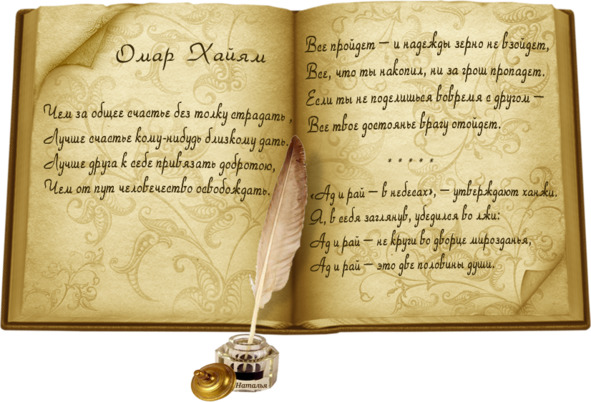 Омар Хайям
Чем за общее счастье без толку страдать,
Лучше счастье кому-нибудь близкому дать.
Лучше друга к себе привязать добротою,
Чем от пут человечество освобождать.
Все пройдет — и надежды зерно не взойдет,
Все, что ты накопил, ни за грош пропадет.
Если ты не поделишься вовремя с другом —
Все твое достоянье врагу отойдет.
* * * * *
«Ад и рай — в небесах», — утверждают ханжи.
Я, в себя заглянув, убедился во лжи:
Ад и рай — не круги во дворце мирозданья,
Ад и рай — это две половины души.
Наталья